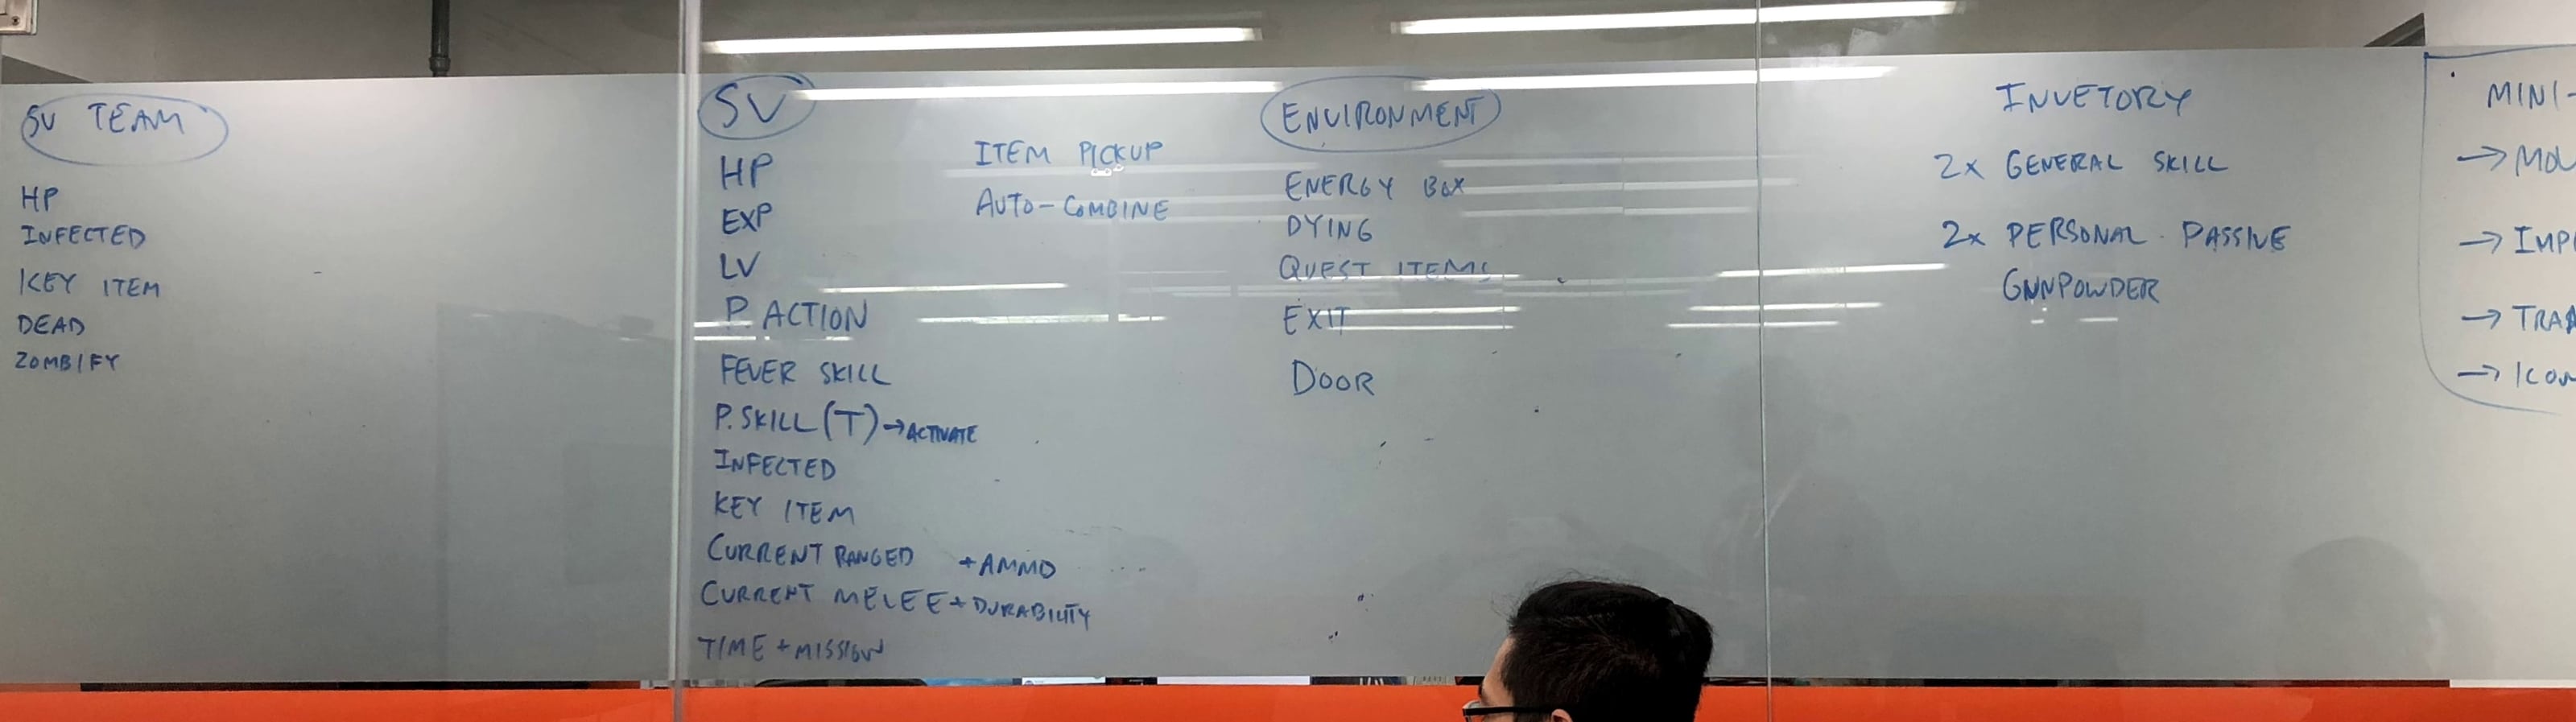 SV TEAM
HP
INFECTED
KEY ITEM
DEAD
ZOMBIFY
SV
HP
EXP
LV
P. ACTION
FEVER SKILL
P. SKILL (T) → ACTIVATE
INFECTED
KEY ITEM
CURRENT RANGED + AMMO
CURRENT MELEE + DURABILITY
TIME + MISSION
ITEM PICKUP
AUTO-COMBINE
ENVIRONMENT
ENERGY BOX
DYING
QUEST ITEMS
EXIT
DOOR
INVETORY
2x GENERAL SKILL
2x PERSONAL PASSIVE
GNNPOWDER
MINI-
→
→ IMP
→ TRA
→